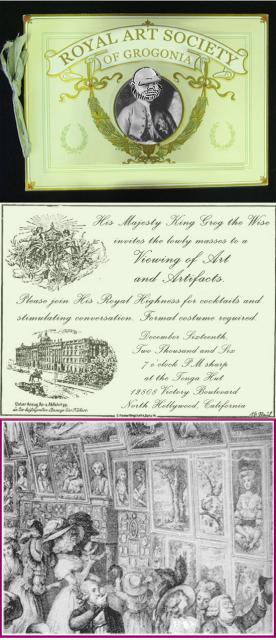 ROYAL ART SOCIETY
OF GROGONIA
His Majesty King Grog the Wise
invites the lowly masses to a
Viewing of Art
and Artifacts.
Please join His Royal Highness for cocktails and
stimulating conversation. Formal costume required.
December Sixteenth,
Two Thousand and Six
7 o'clock P.M sharp
at the Tonga Hut
12808 Victory Boulevard
North Hollywood, California